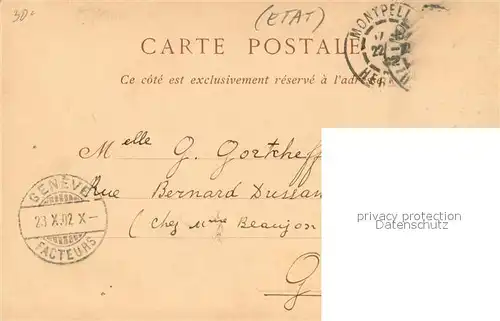 30-
(ETAT)
CARTE POSTALE
Ce côté est exclusivement réservé à l'adresse
MONTPELL
22
HER
Melle G. Gortcheff
Rue Bernard Dussau
(chez Mme Beaujon
G
GENÈVE
23.X.02 X-
FACTEURS
privacy protection
Datenschutz